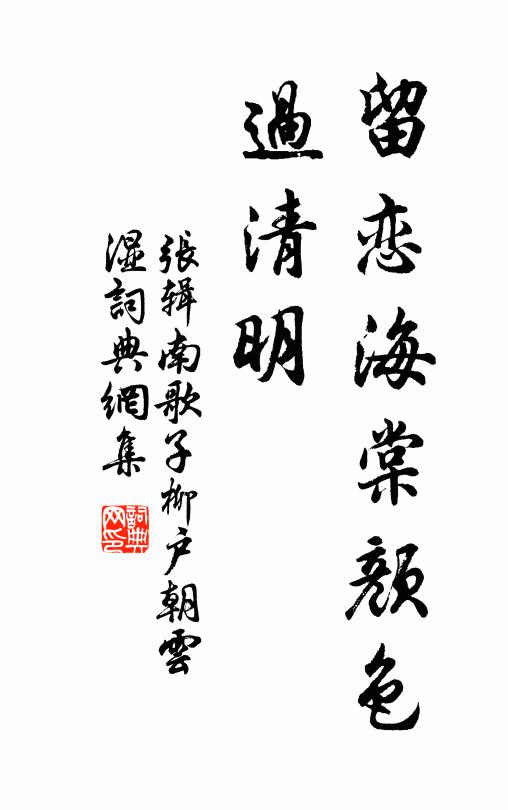 留恋海棠顏色
過清明
張辑南歌子柳户朝雲
濕詞典網集
詞典
网印